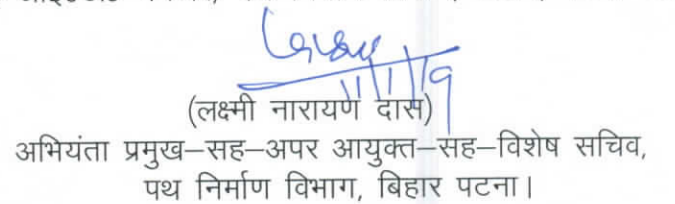 11/1/19
(लक्ष्मी नारायण दास)
अभियंता प्रमुख–सह–अपर आयुक्त–सह–विशेष सचिव,
पथ निर्माण विभाग, बिहार पटना।